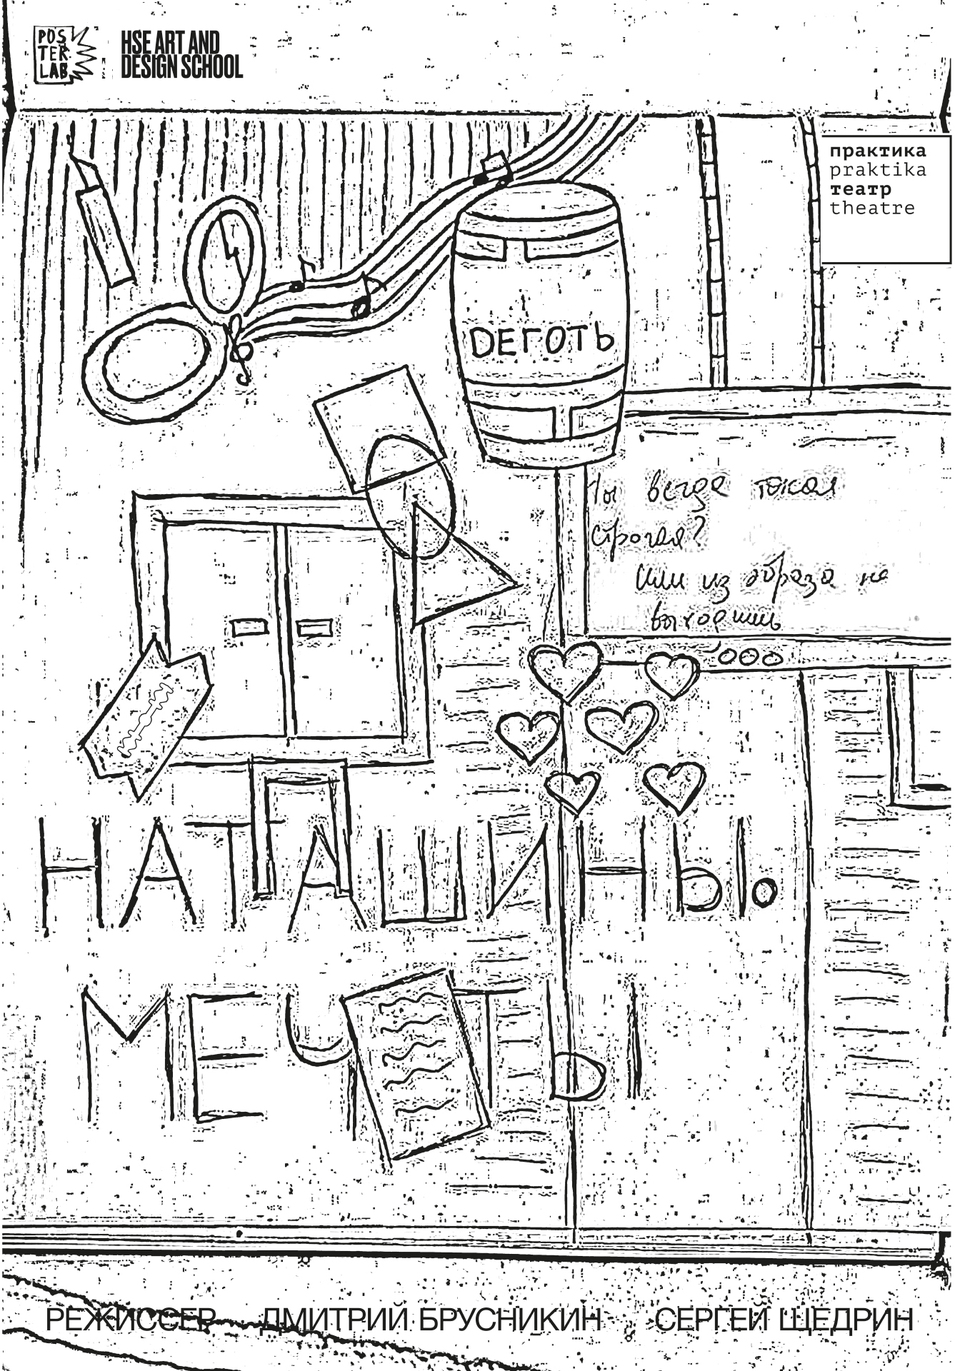 POS
TER
LAB
HSE ART AND
DESIGN SCHOOL
практика
praktika
театр
theatre
ДЕГОТЬ
Ты всегда такая
строгая?
Или из образа не
выходишь
НАТАШИНЫ
МЕЧТЫ
РЕЖИССЕР ДМИТРИЙ БРУСНИКИН СЕРГЕЙ ЩЕДРИН